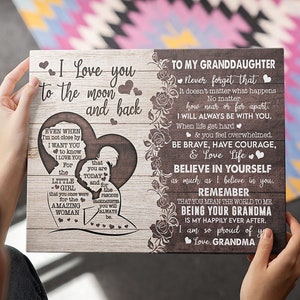 I Love you
to the moon
and back
EVEN WHEN
I'm not close by
I WANT YOU
to know
I LOVE YOU
For
the
LITTLE
GIRL
that you once were
for the
AMAZING
WOMAN
that
you are
TODAY
and
the
you will
ALWAYS
be.
TO MY GRANDDAUGHTER
Never forget that
It doesn't matter what happens
No matter
how near or far apart.
I WILL ALWAYS BE WITH YOU.
When life get hard
& you feel overwhelmed.
BE BRAVE, HAVE COURAGE,
& Love Life
BELIEVE IN YOURSELF
as much as I believe in you.
REMEMBER
THAT YOU MEAN THE WORLD TO ME.
BEING YOUR GRANDMA
IS MY HAPPILY EVER AFTER.
I am so proud of you
Love, GRANDMA